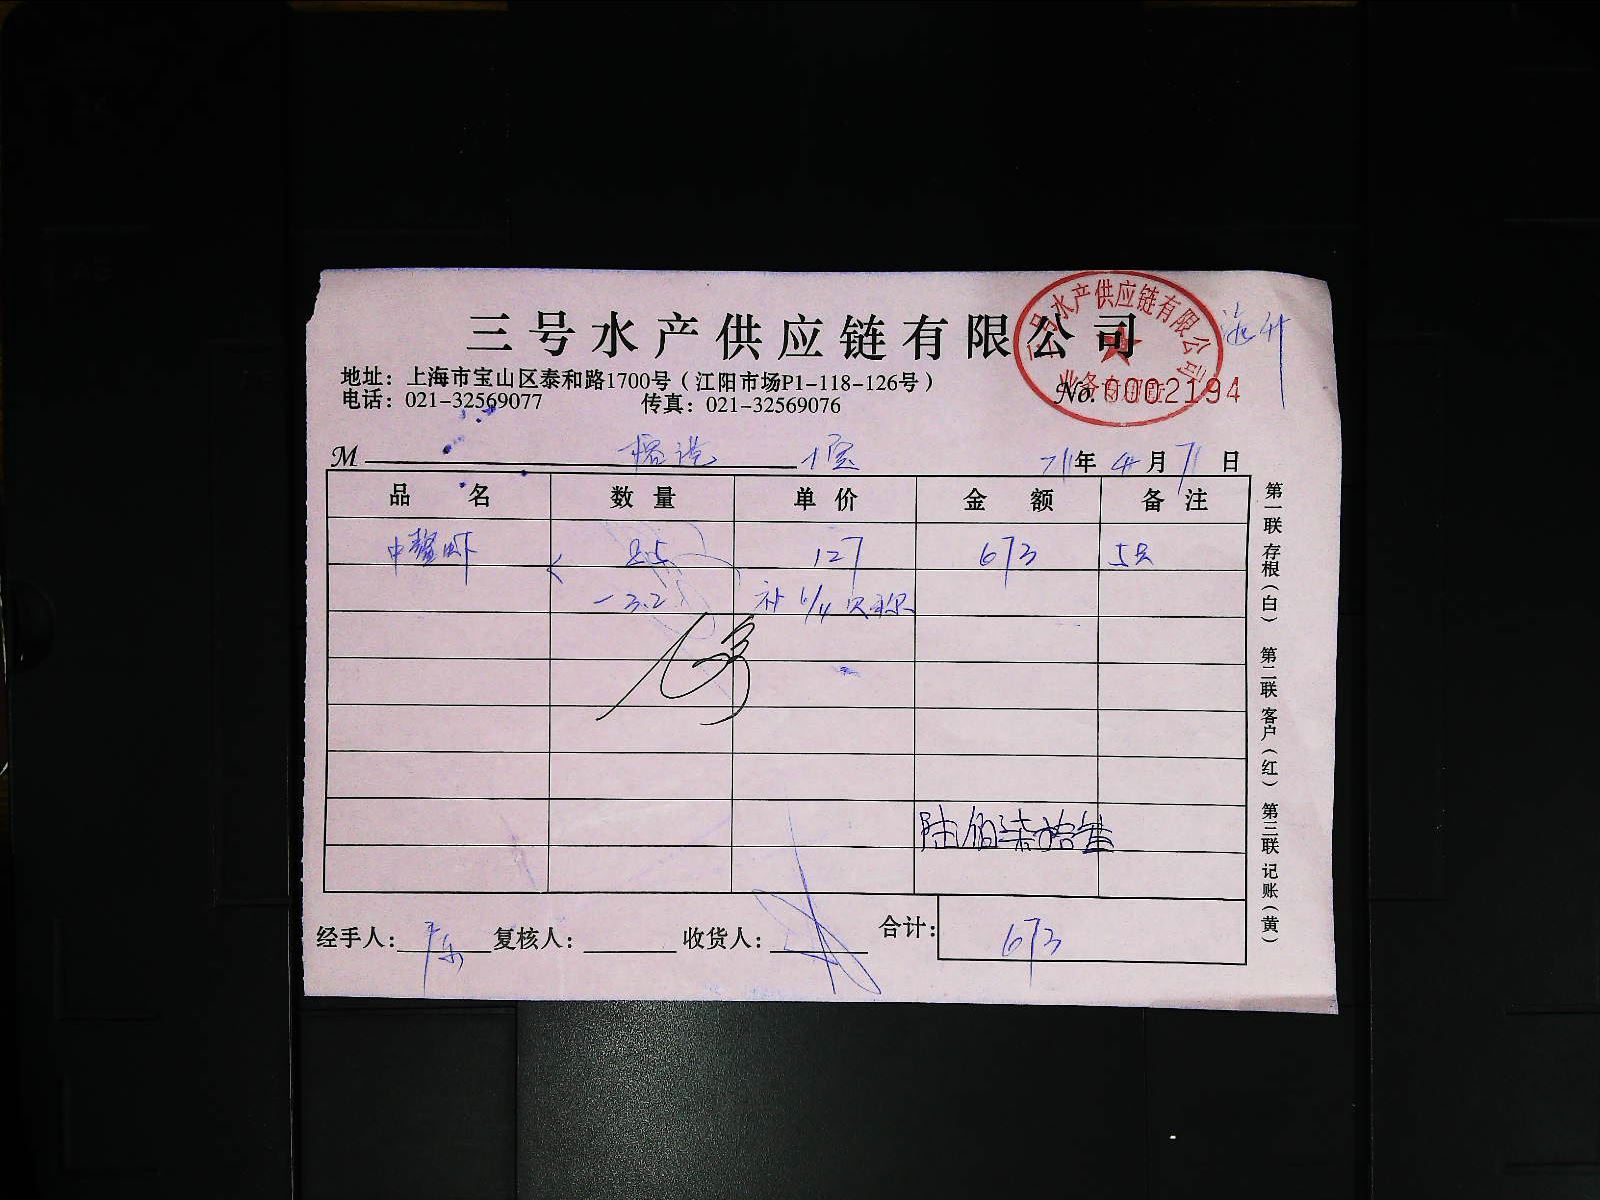 三号水产供应链有限公司
三号水产供应链有限公司
地址：上海市宝山区泰和路1700号（江阳市场P1-118-126号）
No. 0002194
电话：021-32569077 传真：021-32569076
M
年 4 月 日
品名 数量 单价 金额 备注
中螯虾 8.5 127 673 5只
-3.2 补
陆佰柒拾叁
经手人： 复核人： 收货人： 合计： 673
第一联 存根（白） 第二联 客户（红） 第三联 记账（黄）